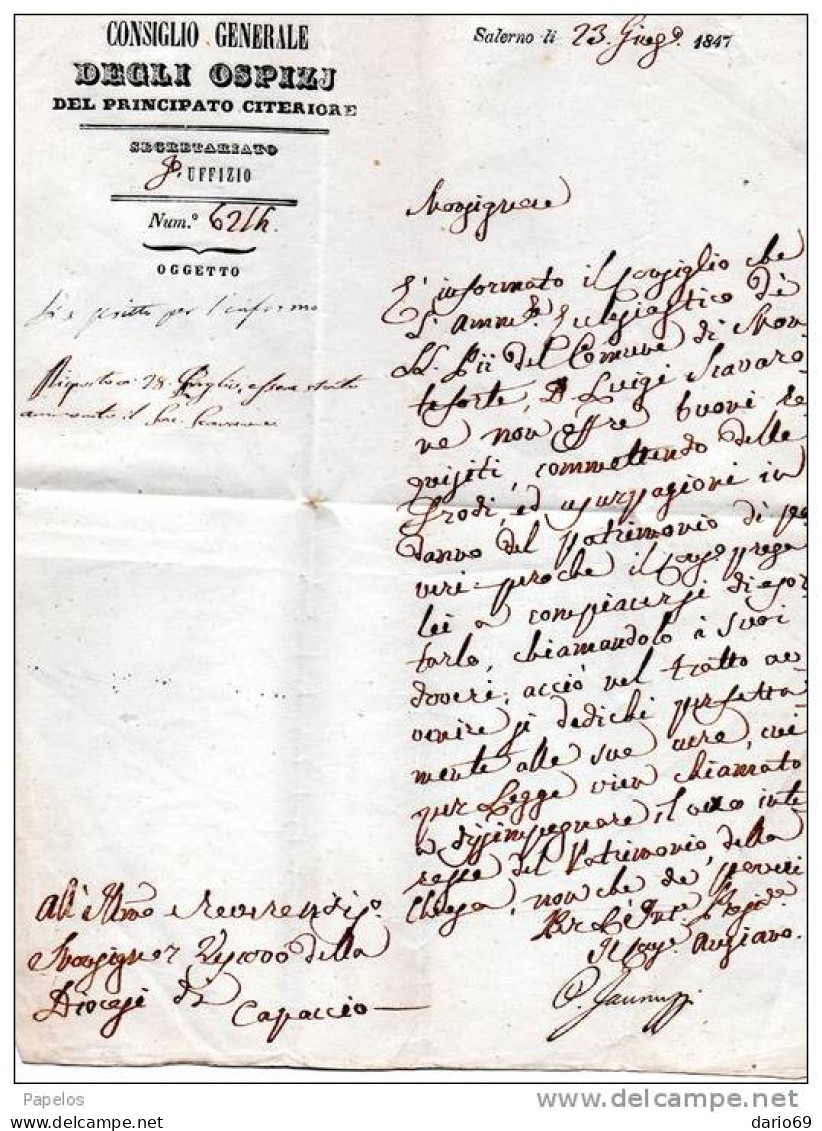 CONSIGLIO GENERALE
DEGLI OSPIZJ
DEL PRINCIPATO CITERIORE
SEGRETARIATO
UFFIZIO
Num.º 6214.
OGGETTO
per l'informo
Risposta a 28. Luglio, essere stato
il
Salerno li 23. Giug.º 1847
Monsignore
E' informato il Consiglio che
l'Amm.re Eclesiastico de'
LL. Pii del Comune di Mon
teforte, D. Luigi Scavaro
ne non offre buoni re
quisiti, commettendo delle
frodi, ed usurpazioni in
danno del Patrimonio di po
veri: perchè il Cons.º prega
Lei a compiacersi di esor
tarlo, chiamandolo à suoi
doveri, acciò nel tratto av
venire si dedichi perfetta
mente alle sue cure, cui
per Legge vien chiamato
a disimpegnare, il vero inte
resse del Patrimonio della
Chiesa, non che de' poveri
Per L'Int.e Presid.e
Il Cons.e Anziano.
All'Ill.mo e Reverendis.º
Monsignor Vescovo della
Diocesi di Capaccio
Papelos
delcampe.net
dario69